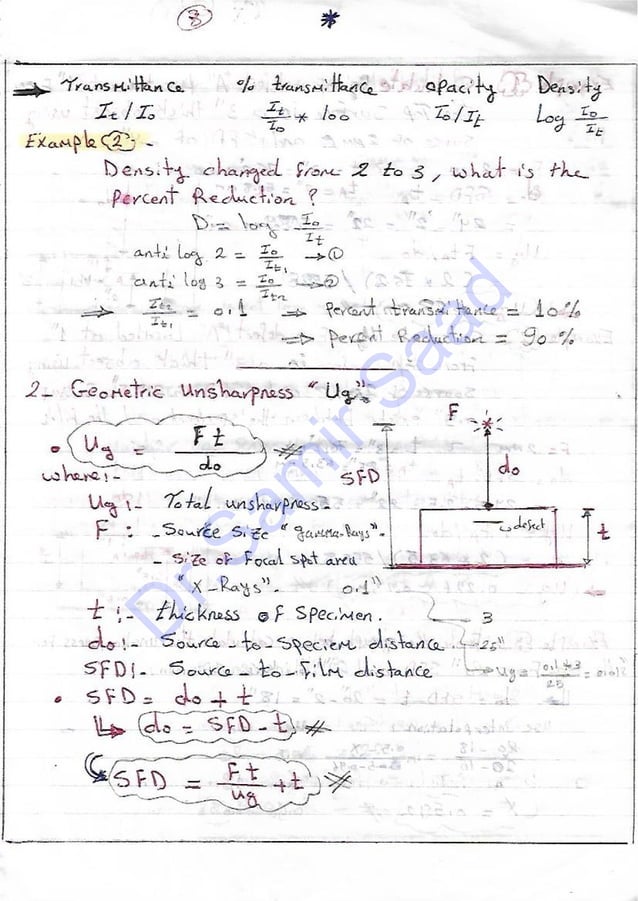 8 *
→ Transmittance % transmittance opacity Density
It/Io It/Io * 100 Io/It Log Io/It
Example (2):-
Density changed from 2 to 3, what is the
Percent Reduction?
D = log Io/It
anti log 2 = Io/It1 → ①
anti log 3 = Io/It2 → ②
⇒ It2/It1 = 0.1 ⇒ Percent transmittance = 10%
⇒ Percent Reduction = 90%
2- Geometric Unsharpness "Ug":
• Ug = Ft/do
where:-
Ug :- Total unsharpness.
F : - Source size "gamma-Rays".
- Size of Focal spot area
"X-Rays". 0.1"
t :- thickness of specimen. 3
do :- Source-to-speciem distance 25"
SFD :- Source-to-film distance
Ug = 0.1*3/25
• SFD = do + t
↳ do = SFD - t
SFD = Ft/ug + t
F
do
SFD
defect
t
Dr Samir Saad